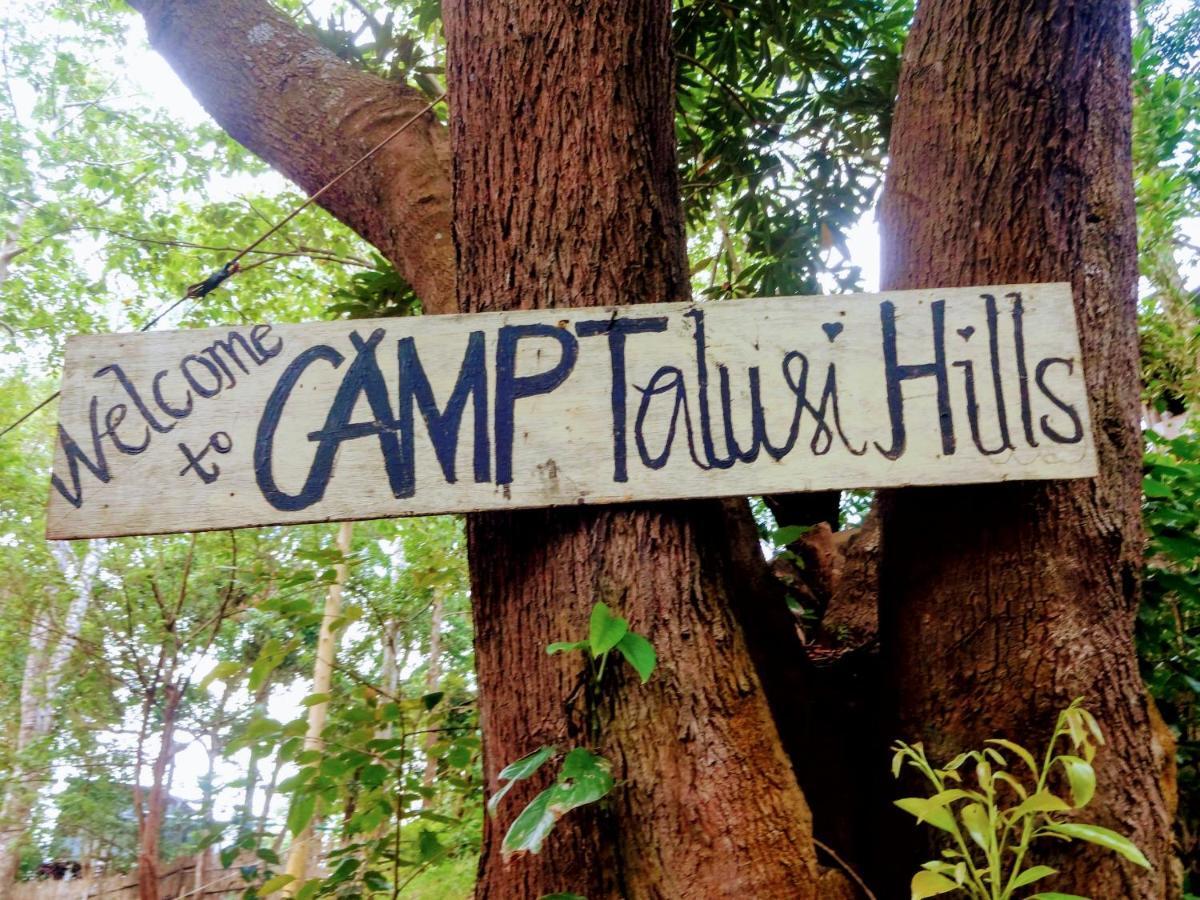 Welcome
to
CAMP Talusi Hills